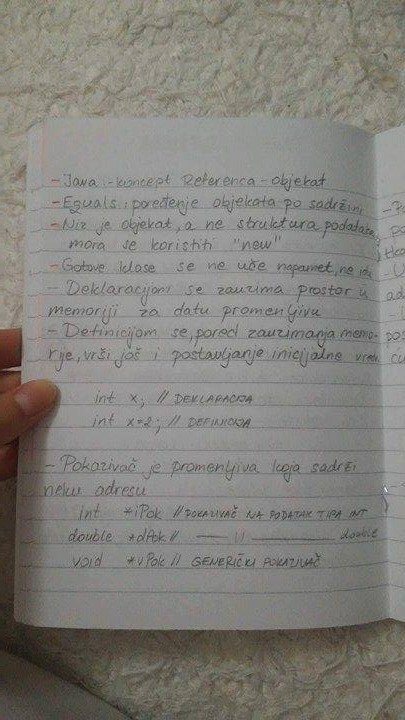 - Java - koncept Referenca - objekat
- Equals : poređenje objekata po sadržini
- Niz je objekat, a ne struktura podataka,
mora se koristiti "new"
- Gotove klase se ne uče napamet, ne
- Deklaracijom se zauzima prostor u
memoriji za datu promenljivu
- Definicijom se, pored zauzimanja memo-
rije, vrši još i postavljanje inicijalne
int x; // DEKLARACIJA
int x=2; // DEFINICIJA
- Pokazivač je promenljiva koja sadrži
neku adresu
int *iPok // POKAZIVAČ NA PODATAK TIPA INT
double *dPok // —— 11 —— double
void *vPok // GENERIČKI POKAZIVAČ